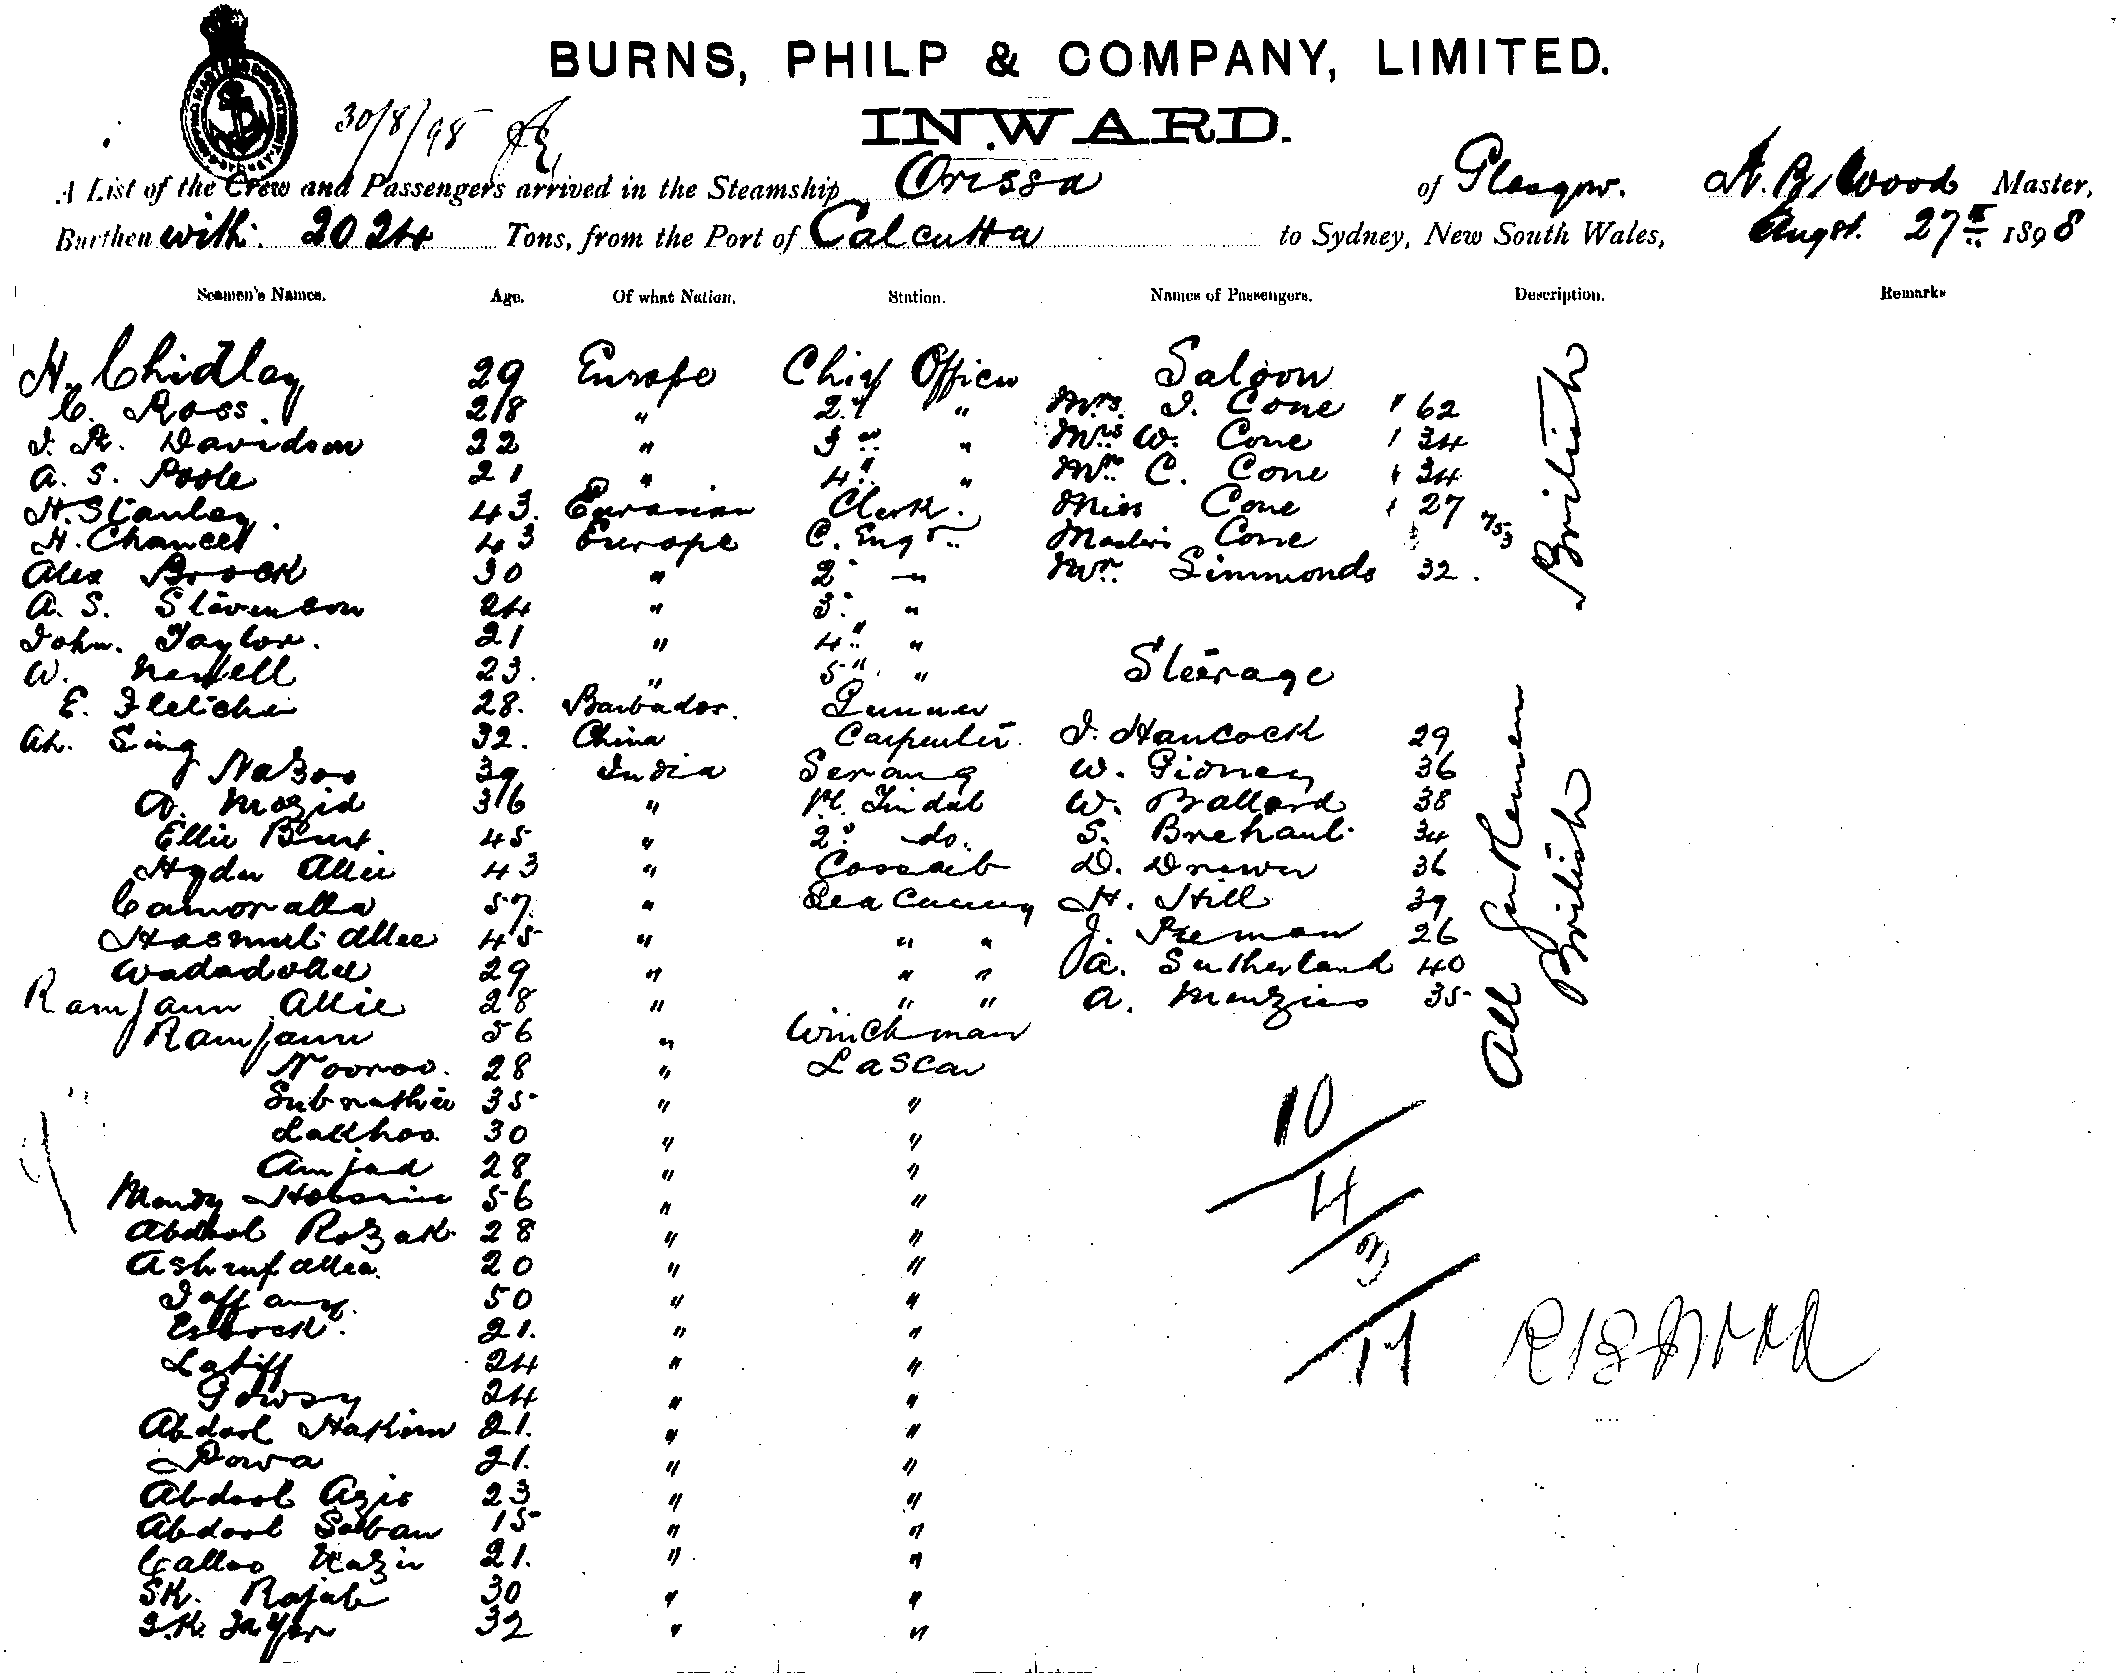 BURNS, PHILP & COMPANY, LIMITED.
INWARD.
30/8/98
A List of the Crew and Passengers arrived in the Steamship Orissa of Glasgow. Wood Master,
Burthen with 2024 Tons, from the Port of Calcutta to Sydney, New South Wales, Augst. 27th 1898
Seamen's Names. Age. Of what Nation. Station. Names of Passengers. Description. Remarks
H. Chidley 29 Europe Chief Officer Saloon
C. Ross. 28 " 2nd " Mrs. J. Cone 62
J. R. Davidson 22 " 3rd " Mrs W. Cone 34
A. S. Poole 21 " 4th " Mr. C. Cone 34
H. Stanley. 43. Eurasian Clerk. Miss Cone 27
H. Chancel 43 Europe C. Engr. Cone
Alex Brock 30 " 2 " Mr. Simmonds 32.
British
A. S. Stevenson 24 " 3 "
John. Taylor. 21 " 4th "
W. Newell 23. " 5th " Steerage
E. Fletcher 28. Barbados. Gunner
Ah. Sing 32. China Carpenter. J. Hancock 29
Nazoo 39 India Serang W. Gidney 36
A. Mozid 36 " 1st. Tindal W. Ballard 38
Ellie Bux. 45 " 2nd do. S. Brehaut 34
Hyder Allie 43 " Cossab D. Drewer 36
Camoralla 57 " Sea Cunny H. Hill 39
Hosmut Allee 45 " " " J. 26
Wadadollee 29 " " " A. Sutherland 40
Ramjann Allie 28 " " " A. Menzies 35
All Gentlemen
British
Ramjann 56 " Winchman
Nooroo. 28 " Lascar
Subnathie 35 " "
Lallhoo 30 " "
Amjad 28 " "
Hossain 56 " "
Abdool Rozak 28 " "
Ashruf Allee. 20 " "
50 " "
21. " "
Latiff 24 " "
Gowsy 24 " "
Abdool Hakim 21. " "
Dowa 21. " "
Abdool Azis 23 " "
Abdool Soban 15 " "
Calloo 21. " "
SK. Rajab 30 " "
S.K. 32 " "
10
4
3
17
Wood